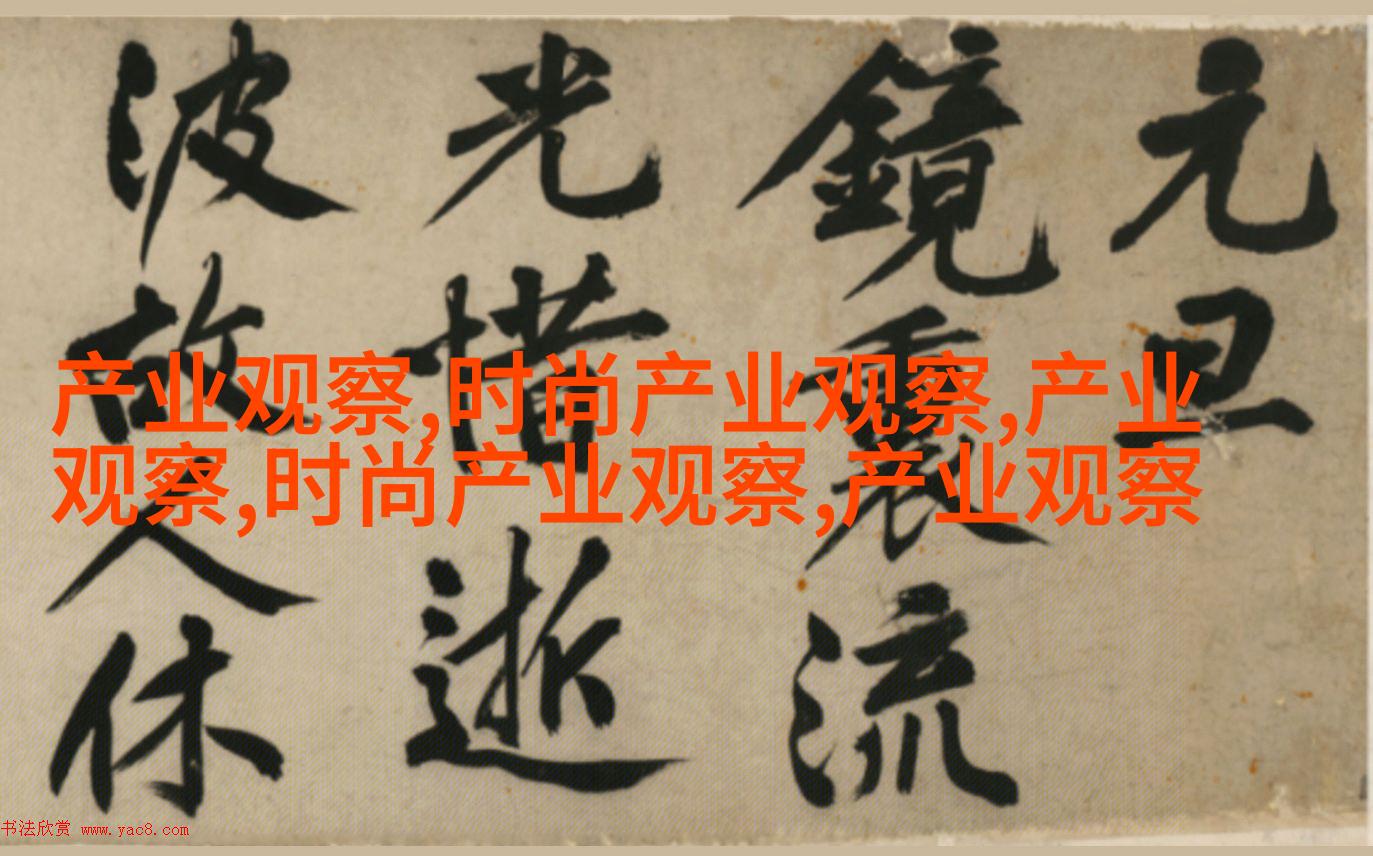 元旦
鏡裏流
光惜逝
波故人休
产业观察,时尚产业观察,产业
观察,时尚产业观察,产业观察
书法欣赏 www.yac8.com